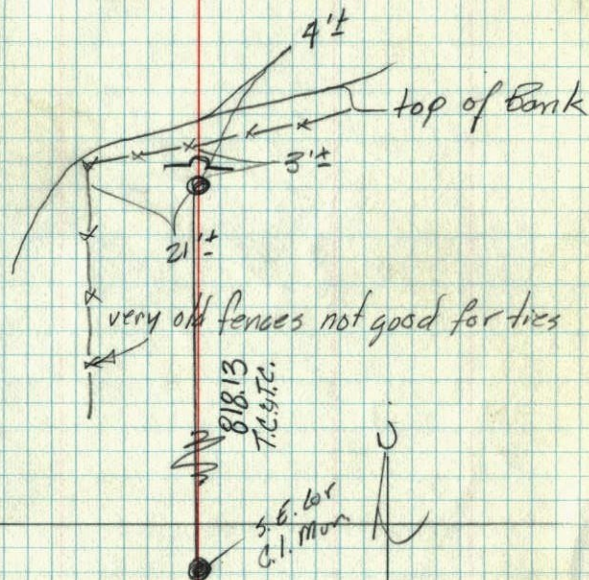 4'±
top of Bank
3'±
21'±
very old fences not good for ties
818.13
T.C.&T.C.
S.E. Cor
C.I. Mon.